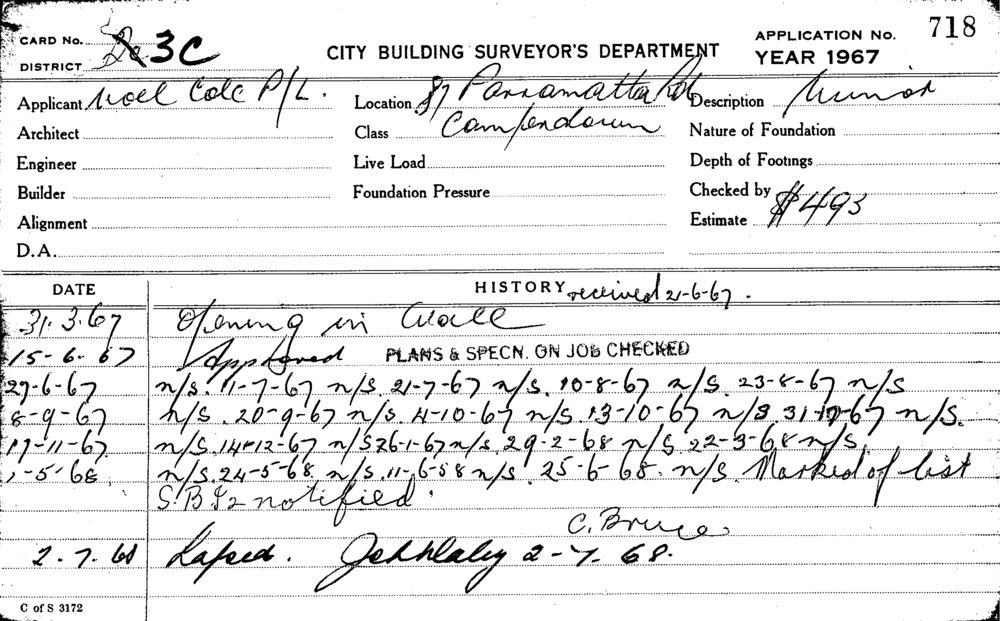 CARD No. 3C
CITY BUILDING SURVEYOR'S DEPARTMENT
APPLICATION No. 718
DISTRICT
YEAR 1967
Applicant Noel Cole P/L.
Location 87 Parramatta Rd
Description Minor
Architect
Class Camperdown
Nature of Foundation
Engineer
Live Load
Depth of Footings
Builder
Foundation Pressure
Checked by
Alignment
Estimate $493
D.A.
DATE
HISTORY received 21-6-67.
31.3.67 Opening in Wall
15-6-67 Approved PLANS & SPECN. ON JOB CHECKED
27-6-67 n/s. 11-7-67 n/s. 21-7-67 n/s. 10-8-67 n/s. 23-8-67 n/s
8-9-67 n/s. 20-9-67 n/s 4-10-67 n/s. 13-10-67 n/s 31-10-67 n/s.
17-11-67 n/s. 14-12-67 n/s 26-1-67 n/s. 29-2-68 n/s. 22-3-68 n/s.
1-5-68 n/s. 24-5-68 n/s. 11-6-58 n/s. 25-6-68. n/s. Marked of list
notified.
C. Bruce
2-7-68 Lapsed. 2-7-68.
C of S 3172